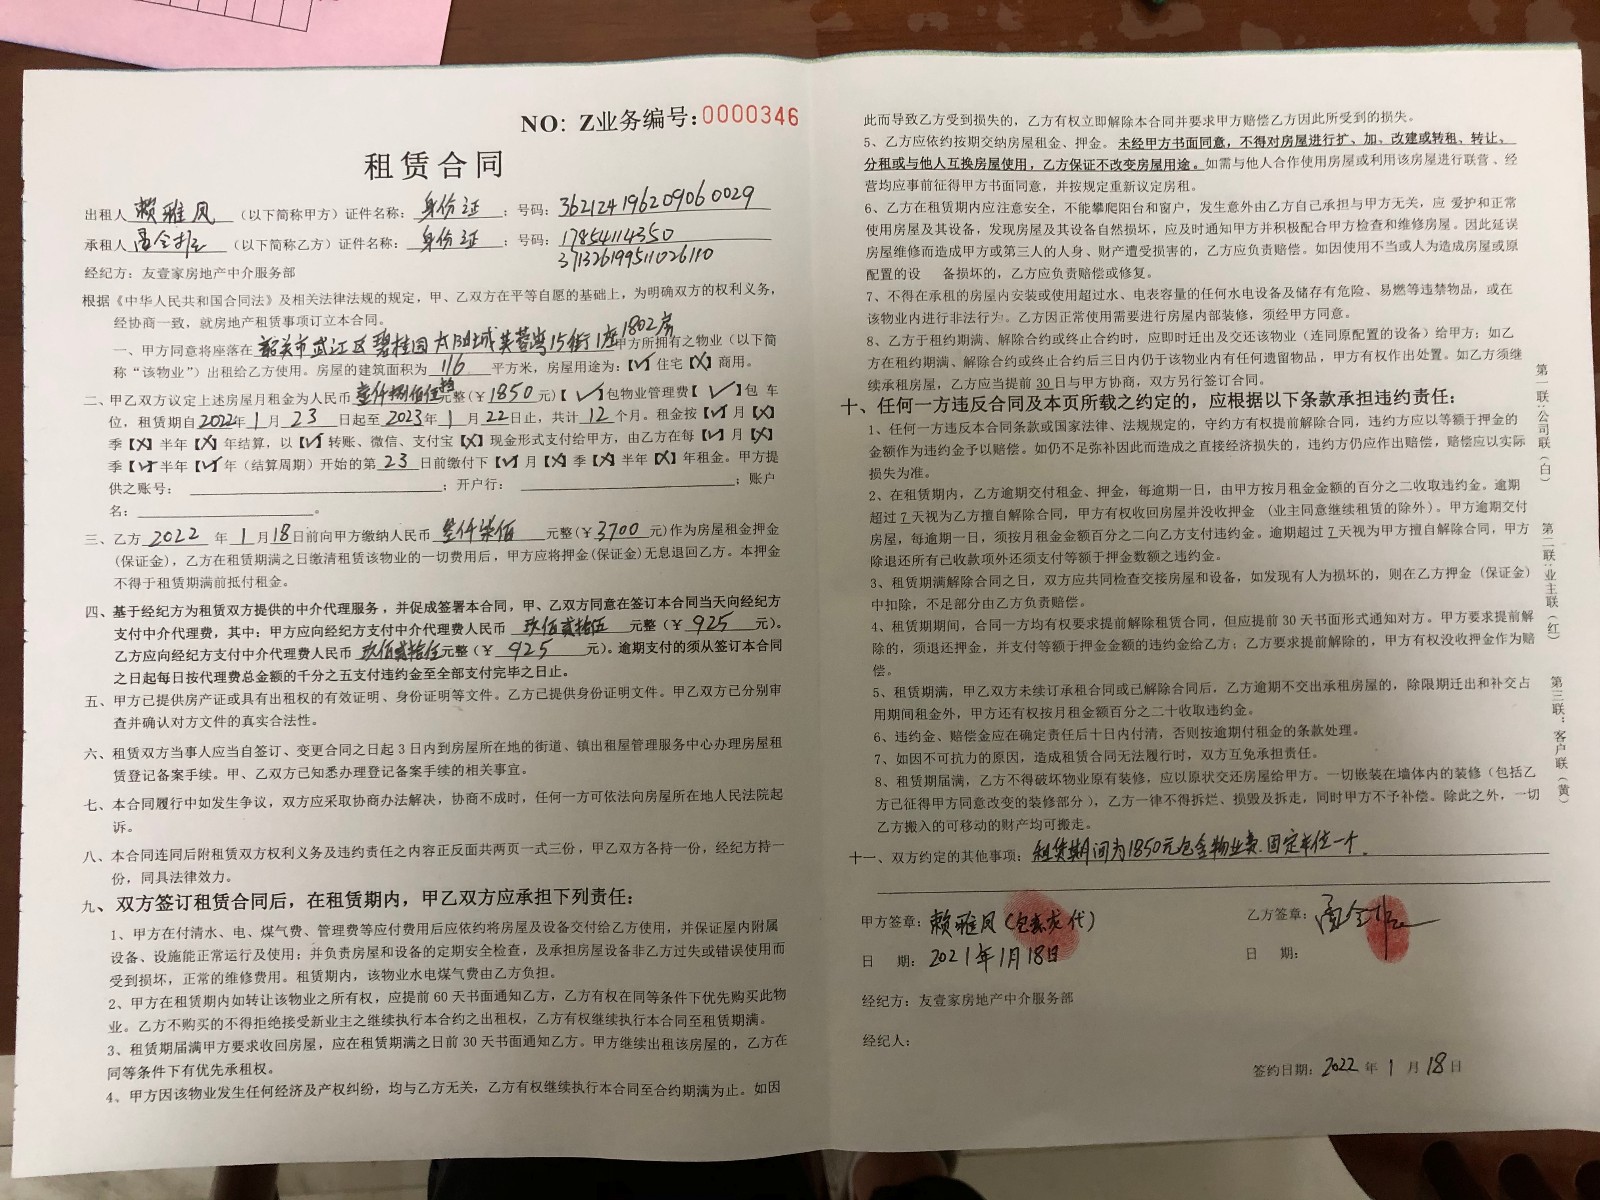 NO: Z业务编号:0000346
租赁合同
出租人 赖雅凤 (以下简称甲方)证件名称: 身份证 ;号码: 362124196209060029
承租人 (以下简称乙方)证件名称: 身份证 ;号码: 17854114350
371326199511026110
经纪方:友壹家房地产中介服务部
根据《中华人民共和国合同法》及相关法律法规的规定,甲、乙双方在平等自愿的基础上,为明确双方的权利义务,
经协商一致,就房地产租赁事项订立本合同。
一、甲方同意将座落在 韶关市武江区碧桂园太阳城芙蓉湾15街1座1802房 甲方所拥有之物业(以下简
称“该物业”)出租给乙方使用。房屋的建筑面积为 116 平方米,房屋用途为:【√】住宅【X】商用。
二、甲乙双方议定上述房屋月租金为人民币 壹仟捌佰伍拾 元整(¥ 1850 元)【 √ 】包物业管理费【 √ 】包 车
位,租赁期自 2022 年 1 月 23 日起至 2023 年 1 月 22 日止,共计 12 个月。租金按【√】月【X】
季【X】半年【X】年结算,以【√】转账、微信、支付宝【X】现金形式支付给甲方,由乙方在每【√】月【X】
季【√】半年【√】年(结算周期)开始的第 23 日前缴付下【√】月【X】季【X】半年【X】年租金。甲方提
供之账号: ;开户行: ;账户
名: 。
三、乙方 2022 年 1 月 18 日前向甲方缴纳人民币 叁仟柒佰 元整(¥ 3700 元)作为房屋租金押金
(保证金),乙方在租赁期满之日缴清租赁该物业的一切费用后,甲方应将押金(保证金)无息退回乙方。本押金
不得于租赁期满前抵付租金。
四、基于经纪方为租赁双方提供的中介代理服务,并促成签署本合同,甲、乙双方同意在签订本合同当天向经纪方
支付中介代理费,其中:甲方应向经纪方支付中介代理费人民币 玖佰贰拾伍 元整(¥ 925 元)。
乙方应向经纪方支付中介代理费人民币 玖佰贰拾伍 元整(¥ 925 元)。逾期支付的须从签订本合同
之日起每日按代理费总金额的千分之五支付违约金至全部支付完毕之日止。
五、甲方已提供房产证或具有出租权的有效证明、身份证明等文件。乙方已提供身份证明文件。甲乙双方已分别审
查并确认对方文件的真实合法性。
六、租赁双方当事人应当自签订、变更合同之日起 3 日内到房屋所在地的街道、镇出租屋管理服务中心办理房屋租
赁登记备案手续。甲、乙双方已知悉办理登记备案手续的相关事宜。
七、本合同履行中如发生争议,双方应采取协商办法解决,协商不成时,任何一方可依法向房屋所在地人民法院起
诉。
八、本合同连同后附租赁双方权利义务及违约责任之内容正反面共两页一式三份,甲乙双方各持一份,经纪方持一
份,同具法律效力。
九、双方签订租赁合同后,在租赁期内,甲乙双方应承担下列责任:
1、甲方在付清水、电、煤气费、管理费等应付费用后应依约将房屋及设备交付给乙方使用,并保证屋内附属
设备、设施能正常运行及使用;并负责房屋和设备的定期安全检查,及承担房屋设备非乙方过失或错误使用而
受到损坏,正常的维修费用。租赁期内,该物业水电煤气费由乙方负担。
2、甲方在租赁期内如转让该物业之所有权,应提前 60 天书面通知乙方,乙方有权在同等条件下优先购买此物
业。乙方不购买的不得拒绝接受新业主之继续执行本合约之出租权,乙方有权继续执行本合同至租赁期满。
3、租赁期届满甲方要求收回房屋,应在租赁期满之日前 30 天书面通知乙方。甲方继续出租该房屋的,乙方在
同等条件下有优先承租权。
4、甲方因该物业发生任何经济及产权纠纷,均与乙方无关,乙方有权继续执行本合同至合约期满为止。如因
此而导致乙方受到损失的,乙方有权立即解除本合同并要求甲方赔偿乙方因此所受到的损失。
5、乙方应依约按期交纳房屋租金、押金。未经甲方书面同意,不得对房屋进行扩、加、改建或转租、转让、
分租或与他人互换房屋使用,乙方保证不改变房屋用途。如需与他人合作使用房屋或利用该房屋进行联营、经
营均应事前征得甲方书面同意,并按规定重新议定房租。
6、乙方在租赁期内应注意安全,不能攀爬阳台和窗户,发生意外由乙方自己承担与甲方无关,应 爱护和正常
使用房屋及其设备,发现房屋及其设备自然损坏,应及时通知甲方并积极配合甲方检查和维修房屋。因此延误
房屋维修而造成甲方或第三人的人身、财产遭受损害的,乙方应负责赔偿。如因使用不当或人为造成房屋或原
配置的设 备损坏的,乙方应负责赔偿或修复。
7、不得在承租的房屋内安装或使用超过水、电表容量的任何水电设备及储存有危险、易燃等违禁物品,或在
该物业内进行非法行为。乙方因正常使用需要进行房屋内部装修,须经甲方同意。
8、乙方于租约期满、解除合约或终止合约时,应即时迁出及交还该物业(连同原配置的设备)给甲方;如乙
方在租约期满、解除合约或终止合约后三日内仍于该物业内有任何遗留物品,甲方有权作出处置。如乙方须继
续承租房屋,乙方应当提前 30 日与甲方协商,双方另行签订合同。
十、任何一方违反合同及本页所载之约定的,应根据以下条款承担违约责任:
1、任何一方违反本合同条款或国家法律、法规规定的,守约方有权提前解除合同,违约方应以等额于押金的
金额作为违约金予以赔偿。如仍不足弥补因此而造成之直接经济损失的,违约方仍应作出赔偿,赔偿应以实际
损失为准。
2、在租赁期内,乙方逾期交付租金、押金,每逾期一日,由甲方按月租金金额的百分之二收取违约金。逾期
超过 7 天视为乙方擅自解除合同,甲方有权收回房屋并没收押金 (业主同意继续租赁的除外)。甲方逾期交付
房屋,每逾期一日,须按月租金金额百分之二向乙方支付违约金。逾期超过 7 天视为甲方擅自解除合同,甲方
除退还所有已收款项外还须支付等额于押金数额之违约金。
3、租赁期满解除合同之日,双方应共同检查交接房屋和设备,如发现有人为损坏的,则在乙方押金(保证金)
中扣除,不足部分由乙方负责赔偿。
4、租赁期期间,合同一方均有权要求提前解除租赁合同,但应提前 30 天书面形式通知对方。甲方要求提前解
除的,须退还押金,并支付等额于押金金额的违约金给乙方;乙方要求提前解除的,甲方有权没收押金作为赔
偿。
5、租赁期满,甲乙双方未续订承租合同或已解除合同后,乙方逾期不交出承租房屋的,除限期迁出和补交占
用期间租金外,甲方还有权按月租金额百分之二十收取违约金。
6、违约金、赔偿金应在确定责任后十日内付清,否则按逾期付租金的条款处理。
7、如因不可抗力的原因,造成租赁合同无法履行时,双方互免承担责任。
8、租赁期届满,乙方不得破坏物业原有装修,应以原状交还房屋给甲方。一切嵌装在墙体内的装修(包括乙
方已征得甲方同意改变的装修部分),乙方一律不得拆烂、损毁及拆走,同时甲方不予补偿。除此之外,一切
乙方搬入的可移动的财产均可搬走。
十一、双方约定的其他事项: 租赁期间为1850元包含物业费.固定车位一个.
甲方签章: 赖雅凤(代)
日 期: 2021年1月18日
乙方签章:
日 期:
经纪方:友壹家房地产中介服务部
经纪人:
签约日期: 2022 年 1 月 18 日
第一联:公司联(白)
第二联:业主联(红)
第三联:客户联(黄)